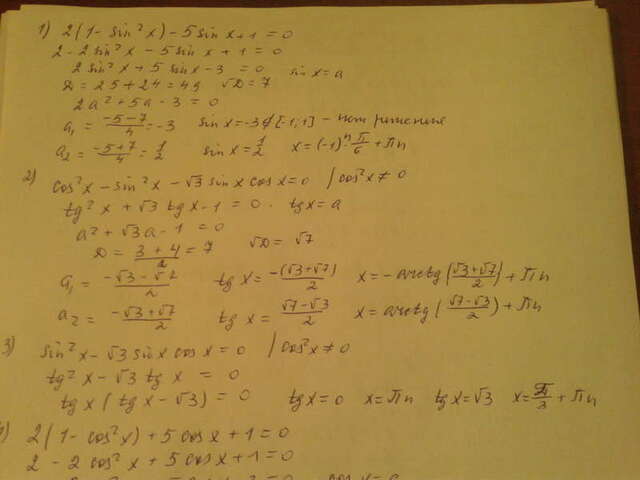 1) 2(1 - sin²x) - 5 sin x + 1 = 0
2 - 2 sin²x - 5 sin x + 1 = 0
2 sin²x + 5 sin x - 3 = 0 sin x = a
D = 25 + 24 = 49 √D = 7
2a² + 5a - 3 = 0
a₁ = (-5-7)/4 = -3 sin x = -3 ∉ [-1;1] - нет решения
a₂ = (-5+7)/4 = 1/2 sin x = 1/2 x = (-1)ⁿ · π/6 + πn
2) cos²x - sin²x - √3 sin x cos x = 0 | cos²x ≠ 0
tg²x + √3 tg x - 1 = 0. tg x = a
a² + √3a - 1 = 0
D = (3 + 4)/2 = 7 √D = √7
a₁ = (-√3 - √7)/2 tg x = -(√3+√7)/2 x = -arctg((√3+√7)/2) + πn
a₂ = (-√3+√7)/2 tg x = (√7-√3)/2 x = arctg((√7-√3)/2) + πn
3) sin²x - √3 sin x cos x = 0 | cos²x ≠ 0
tg²x - √3 tg x = 0
tg x (tg x - √3) = 0 tg x = 0 x = πn tg x = √3 x = π/3 + πn
) 2(1 - cos²x) + 5 cos x + 1 = 0
2 - 2 cos²x + 5 cos x + 1 = 0